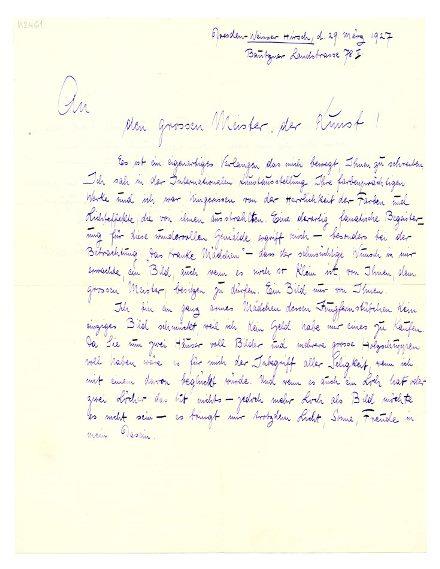 K2461
Dresden-Weisser Hirsch, d. 29 März 1927
Bautzner Landstrasse 78 I
An
den grossen Meister, der Kunst!
Es ist ein eigenartiges Verlangen das mich bewegt Ihnen zu schreiben
Ich sah in der Internationalen Kunstausstellung Ihre farbenprächtigen
Werke und ich war von der Herrlichkeit der Farben und
Lichteffekte, die von ihnen ausstrahlten Eine derartig fanatische Begeister-
ung für diese wundervollen Gemälde ergriff mich – besonders bei der
Betrachtung "das kranke Mädchen" – dass der sehnsüchtige Wunsch in mir
erwachte ein Bild, auch wenn es noch so klein ist von Ihnen dem
grossen Meister, besitzen zu dürfen. Ein Bild nur von Ihnen.
Ich bin ein ganz armes Mädchen dessen Jungfernstübchen kein
einziges Bild schmückt weil ich kein Geld habe mir eines zu kaufen.
Da Sie nun zwei Häuser voll Bilder und mehrere grosse Holzschuppen
voll haben wäre es für mich der Inbegriff aller Seligkeit, wenn ich
mit einem davon beglückt würde. Und wenn es auch ein Loch hat oder
zwei Löcher das tut nichts – jedoch mehr Loch als Bild möchte
es nicht sein – es bringt mir trotzdem Licht, Sonne, Freude in
mein Dasein.